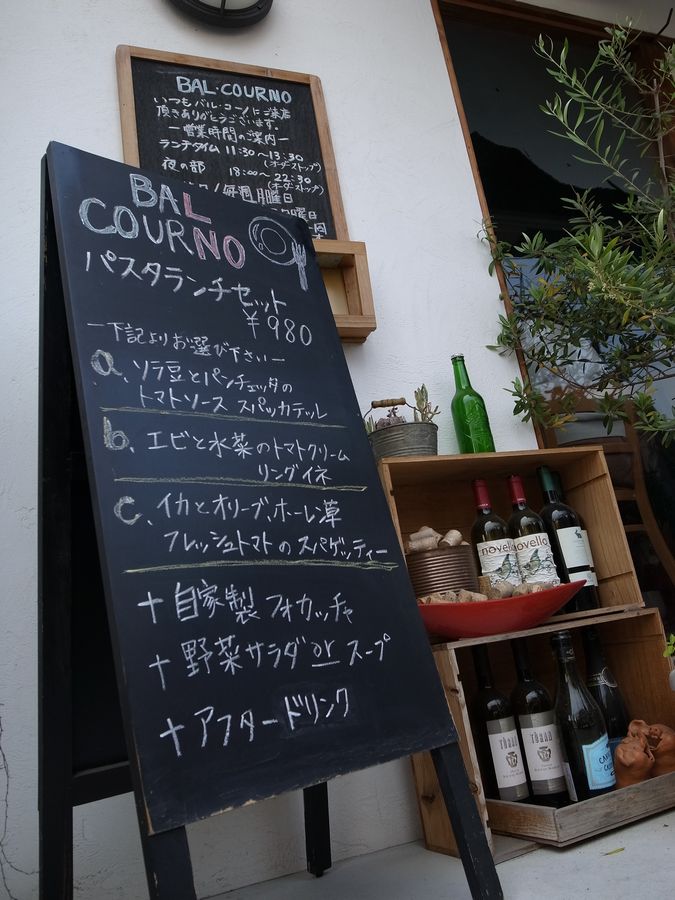 BAL・COURNO
いつもバル・コーノにご来店
頂きありがとうございます。
ー営業時間のご案内ー
ランチタイム 11:30〜13:30
(オーダーストップ)
夜の部 18:00〜22:30
(オーダーストップ)
毎週月曜日
BAL
COURNO
パスタランチセット
¥980
ー下記よりお選び下さいー
a. ソラ豆とパンチェッタの
トマトソース スパッカテッレ
b. エビと水菜のトマトクリーム
リングイネ
c. イカとオリーブ、ホーレン草
フレッシュトマトのスパゲッティー
+自家製フォカッチャ
+野菜サラダorスープ
+アフタードリンク
novello
novello